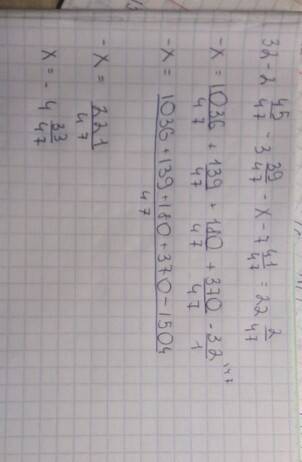 32 - 2 45/47 - 3 39/47 - x - 7 41/47 = 22 2/47
-x = 1036/47 + 139/47 + 180/47 + 370/47 - 32/1 ^(47
-x = (1036+139+180+370-1504)/47
-x = 221/47
x = - 4 33/47